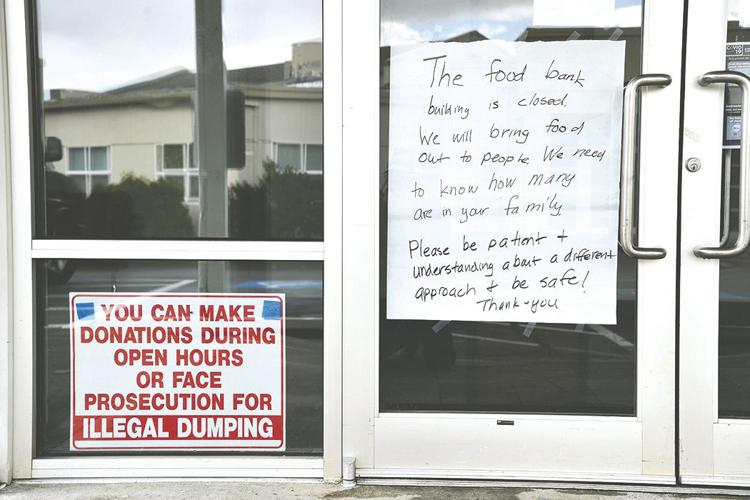 The food bank
building is closed.
We will bring food
out to people We need
to know how many
are in your family
Please be patient +
understanding about a different
approach + be safe!
Thank-you
YOU CAN MAKE
DONATIONS DURING
OPEN HOURS
OR FACE
PROSECUTION FOR
ILLEGAL DUMPING
COVID
19